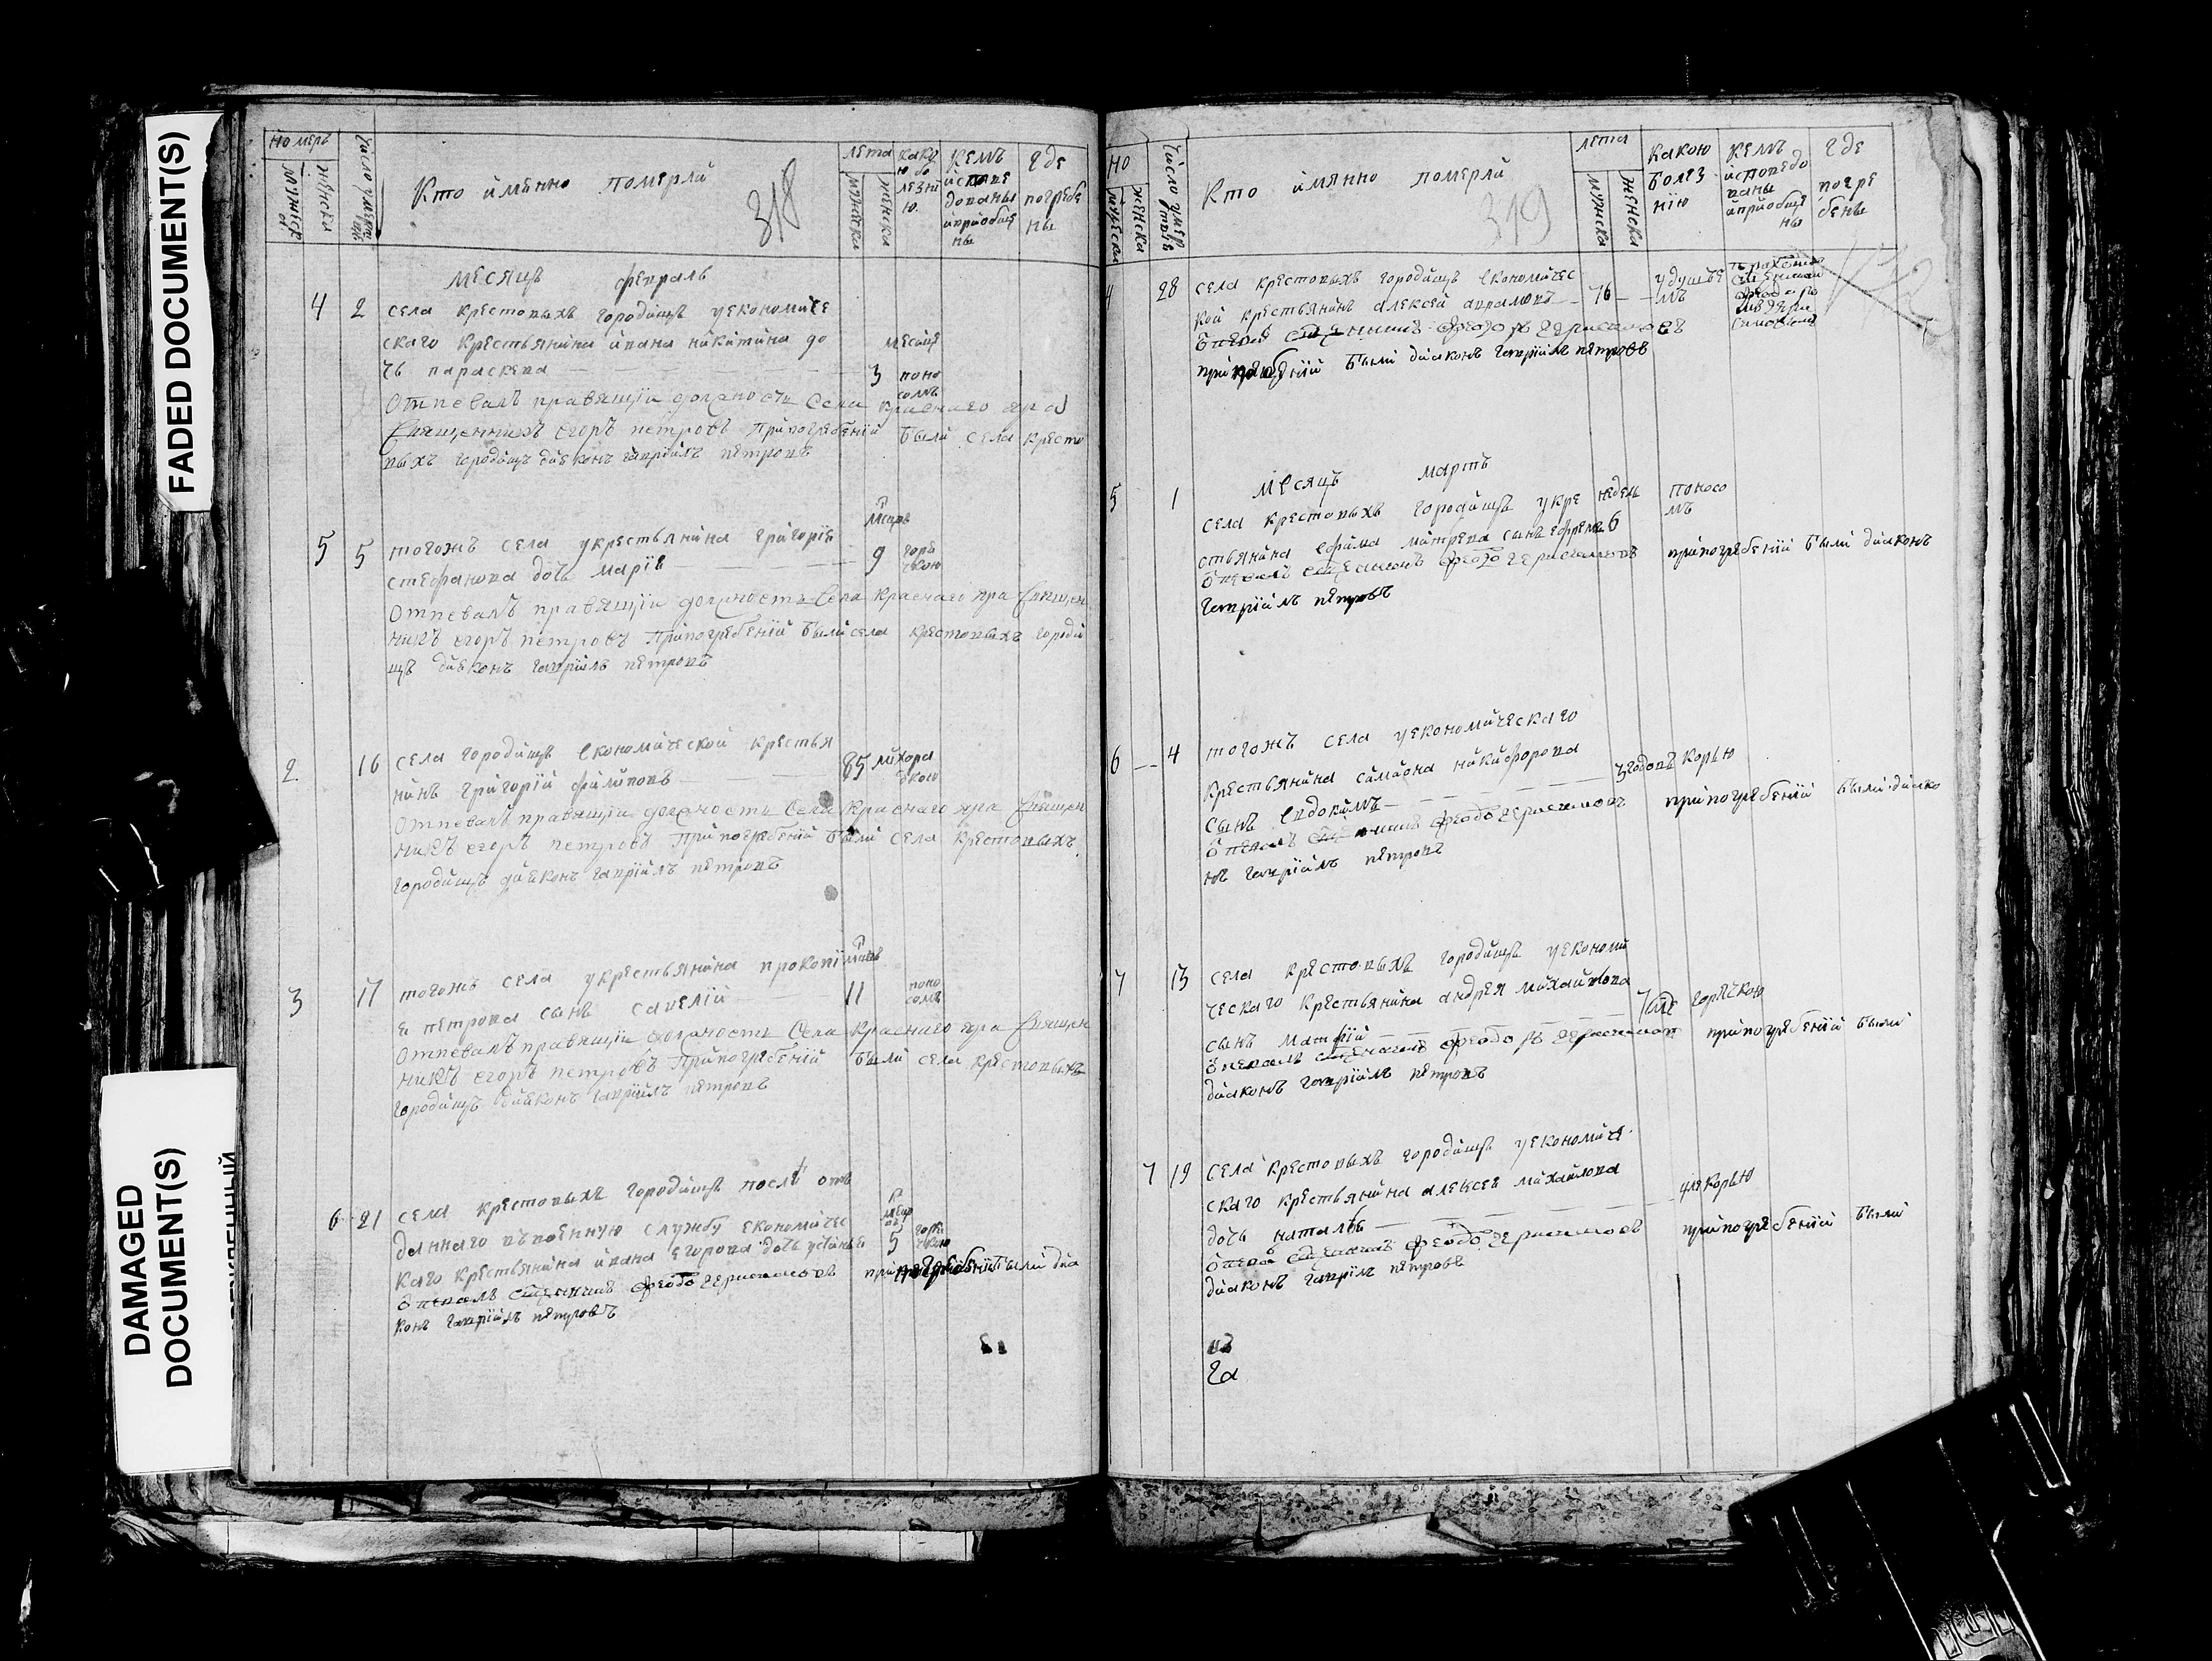 FADED DOCUMENT(S)
DAMAGED
DOCUMENT(S)
номеръ
мужеска
женска
число умерт
Кто имянно померли
318
лета
мужеска
женска
какою болезнию
кемъ исповедованы и приобщены
где погребены
месяцъ февраль
4 2 села крестовыхъ городищъ уекономиче
скаго крестьянина ивана никитина до
месяце
чь параскева 3 поно
сомъ
Отпевалъ правящiи должность села краснаго яра
священникъ егоръ петровъ При погребенiи были села кресто
выхъ городищъ диаконъ гаврiилъ петровъ
5 5 тогожъ села укрестьянина григорiя
стефанова дочь марiя 9 горячкою
Отпевалъ правящiи должность Села Краснаго яра священ
никъ егоръ петровъ При погребенiи были села крестовыхъ городи
щъ диаконъ гаврiилъ петровъ
2 16 села городищъ економической крестья
нинъ григорiй филиповъ 85 лихора
дкою
Отпевалъ правящiи должность Села Краснаго яра священ
никъ егоръ петровъ При погребенiи были села крестовыхъ
городищъ диаконъ гаврiилъ петровъ
3 17 тогожъ села укрестьянина прокопi
я петрова сынъ савелiй 11 поно
сомъ
Отпевалъ правящiи должность Села Краснаго яра священ
никъ егоръ петровъ При погребенiи были села крестовыхъ
городищъ диаконъ гаврiилъ петровъ
6 21 села крестовыхъ городищъ после отъ
даннаго въ военную службу економичес
каго крестьянина ивана егорова дочь устинья 5 горячкою
отпевалъ священникъ феодоръ герасимовъ при погребенiи были диа
конъ гаврiилъ петровъ
но
мужеска
женска
число умертвiе
Кто имянно померли
319
лета
мужска
женска
какою болезнiю
кемъ исповедованы и приобщены
где погребены
4 28 села крестовыхъ городищъ економичес
кой крестьянинъ алексей аврамовъ 76 удушьемъ
отпевалъ священникъ феодоръ герасимовъ
при погребенiи были диаконъ гаврiилъ петровъ
месяцъ мартъ
5 1 села крестовыхъ городищъ укре недель поносо
мъ
стьянина ефима сынъ ефремъ 6
отпевалъ священникъ феодоръ герасимовъ при погребенiи были диаконъ
гаврiилъ петровъ
6 4 тогожъ села уекономическаго
крестьянина самсона никифорова
сынъ евдокимъ 3 годовъ корью
отпевалъ священникъ феодоръ герасимовъ при погребенiи были диако
нъ гаврiилъ петровъ
7 13 села крестовыхъ городищъ уекономи
ческаго крестьянина андрея михайлова
сынъ матфiй горячкою
отпевалъ священникъ феодоръ герасимовъ при погребенiи были
диаконъ гаврiилъ петровъ
7 19 села крестовыхъ городищъ уекономиче
скаго крестьянина алексея михайлова
дочь наталья корью
отпевалъ священникъ феодоръ герасимовъ при погребенiи были
диаконъ гаврiилъ петровъ
га